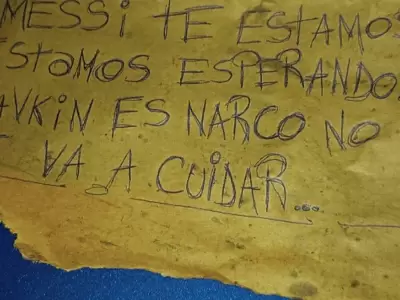 MESSI TE ESTAMOS
ESTAMOS ESPERANDO.
AVKIN ES NARCO NO
VA A CUIDAR...